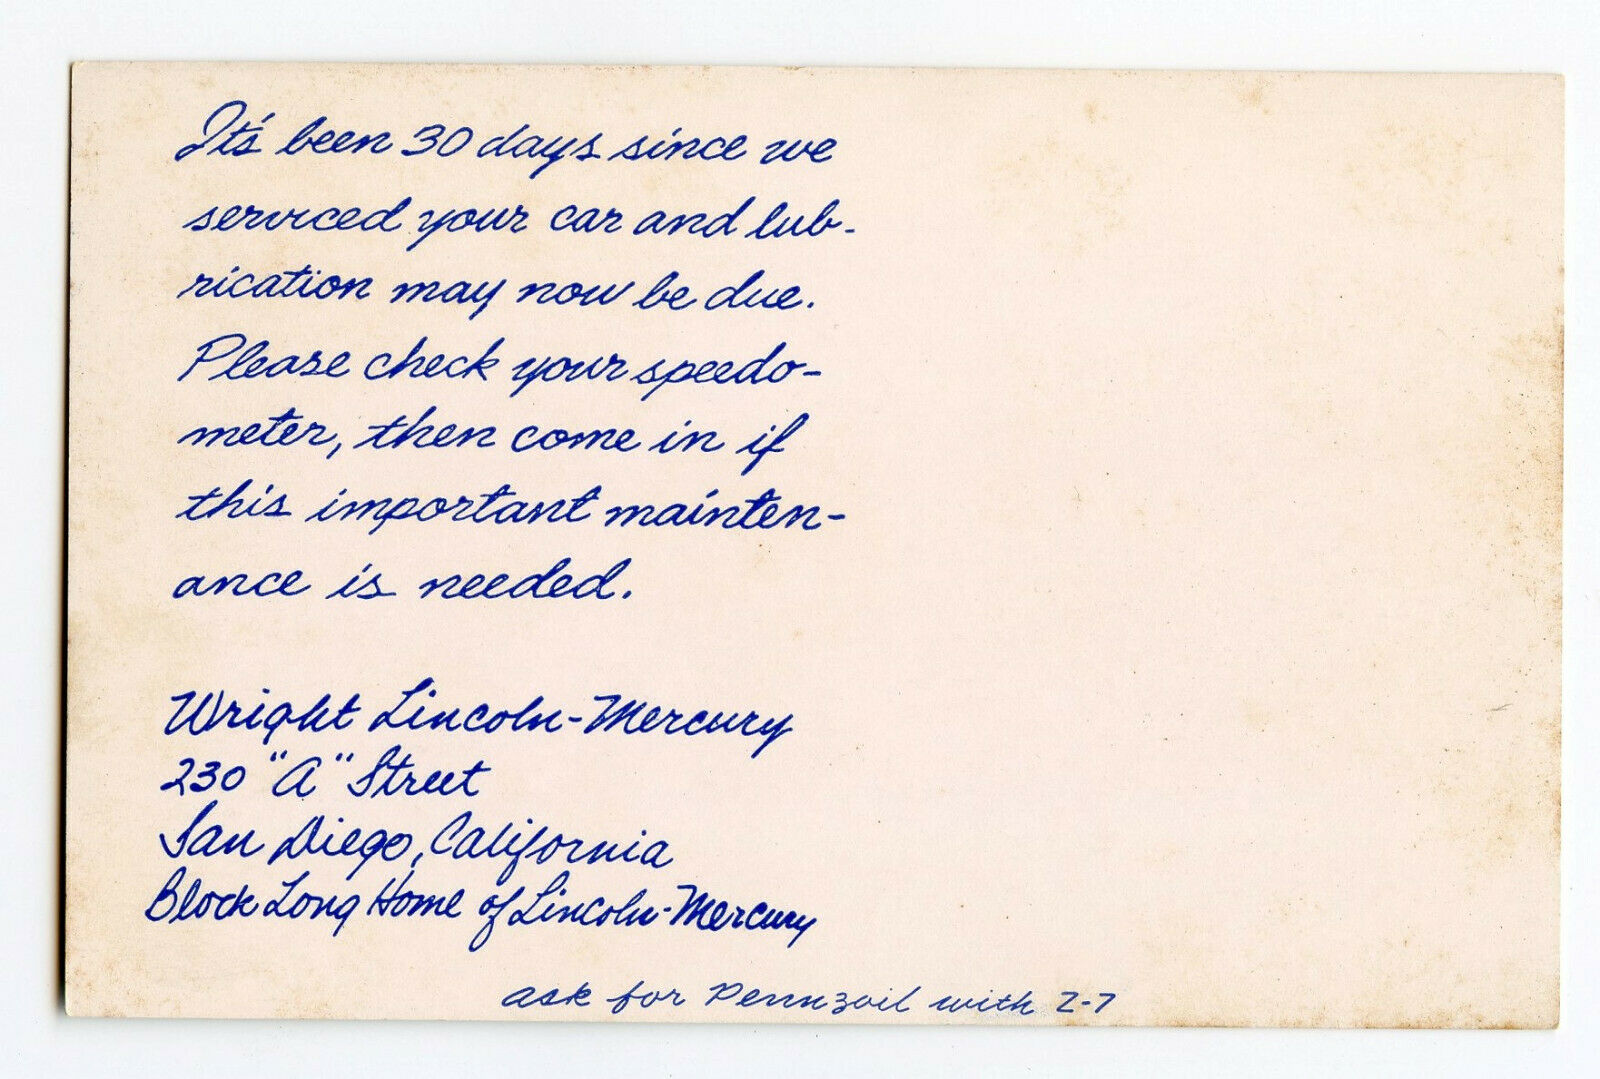 It's been 30 days since we
serviced your car and lub-
rication may now be due.
Please check your speedo-
meter, then come in if
this important mainten-
ance is needed.
Wright Lincoln-Mercury
230 "A" Street
San Diego, California
Block Long Home of Lincoln-Mercury
ask for Pennzoil with Z-7